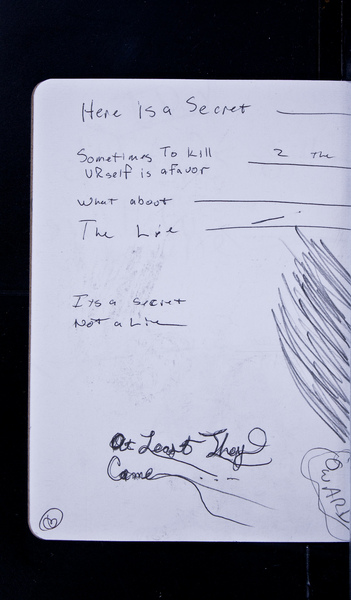 Here Is a Secret
Sometimes To Kill 2 The
URself is a favor
What about
The Lie
It's a secret
Not a Lie
At Least They
Came